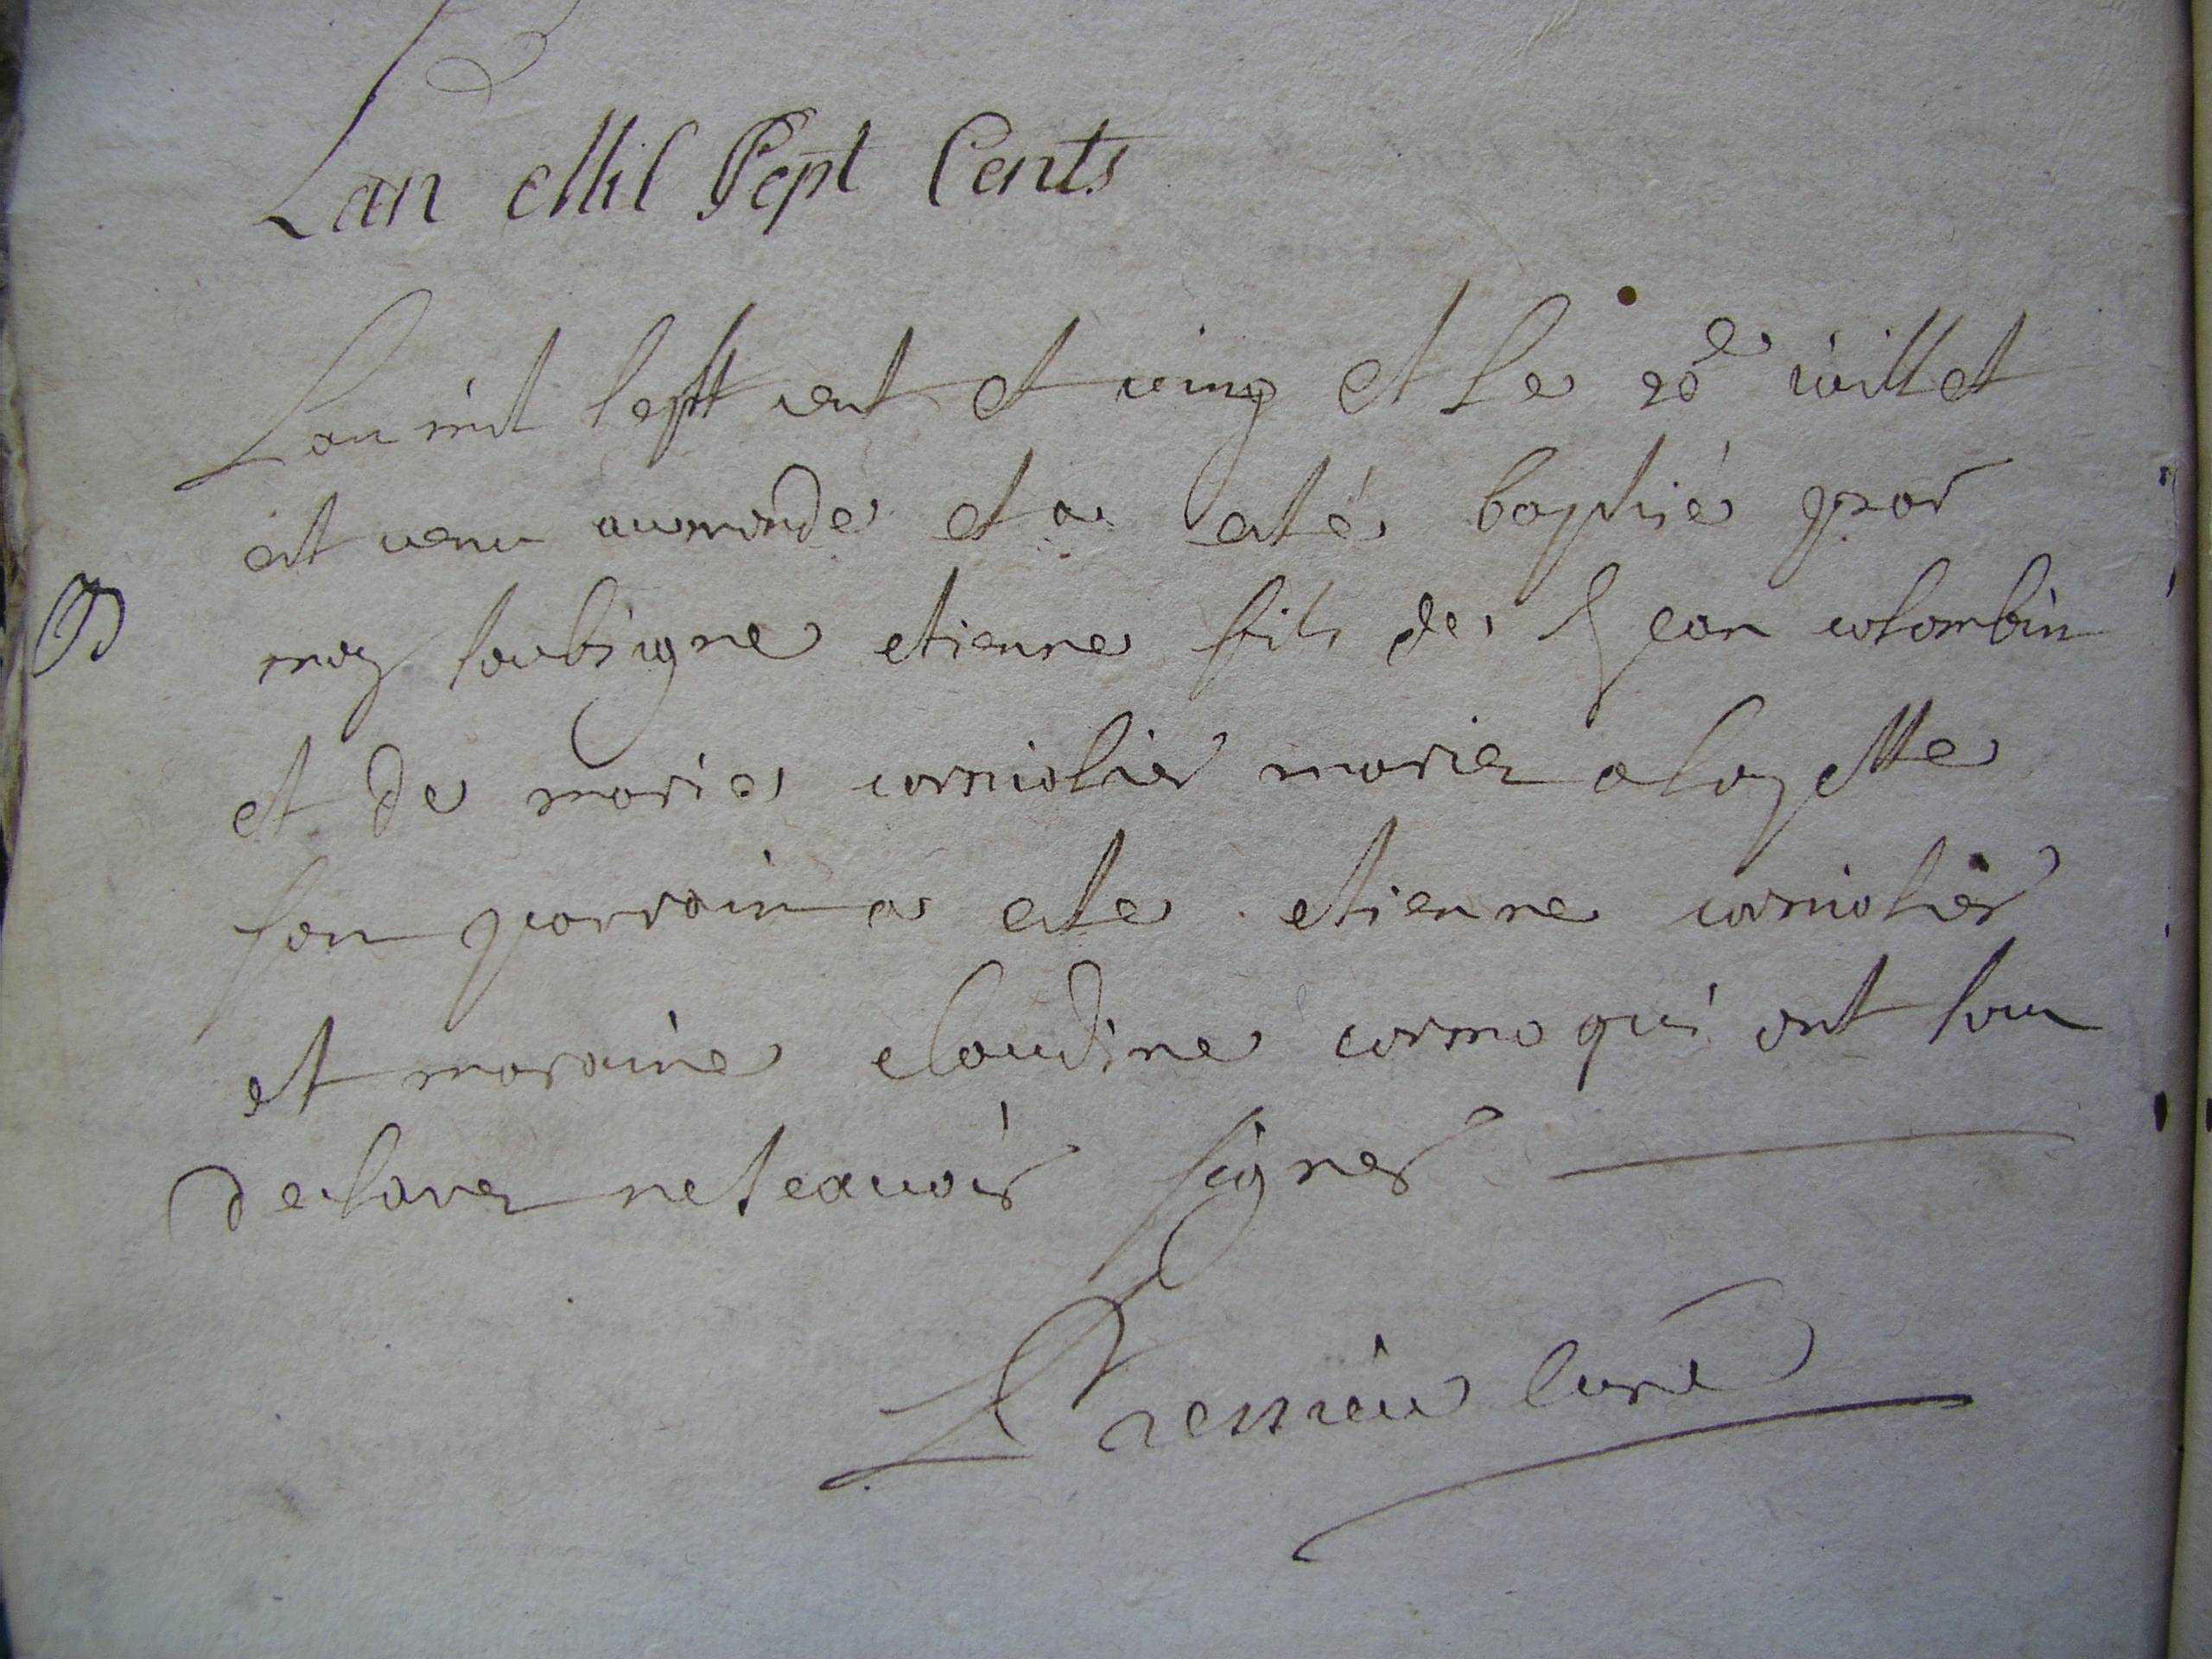 Lan Mil Sept Cents
Lan mil sept cent et cinq et le 20e iuillet
est venu aumonde et a esté baptisé par
B
moy soubsigne etienne fils de Jean colombin
et de marie cormolier mariez a loyette
son parrain a este etienne cormolier
et maraine claudine cormo qui ont tous
declarez ne scauoir signer
Tressieu Curé